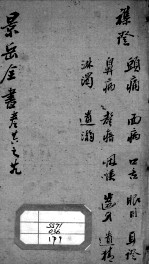 襍證
頭痛 面病 口舌 眼目 耳證
鼻病 聲瘖 咽喉 齒牙 遺精
淋濁 遺溺
景岳全書
5571